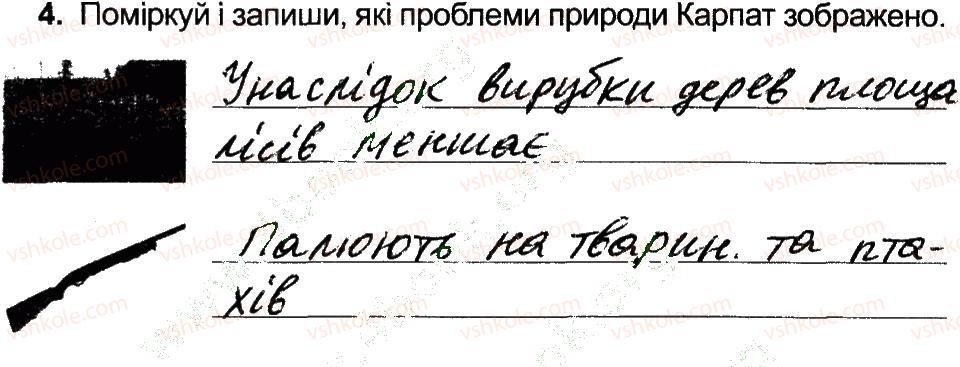 4. Поміркуй і запиши, які проблеми природи Карпат зображено.
Унаслідок вирубки дерев площа
лісів меншає
Палюють на тварин. та пта-
хів